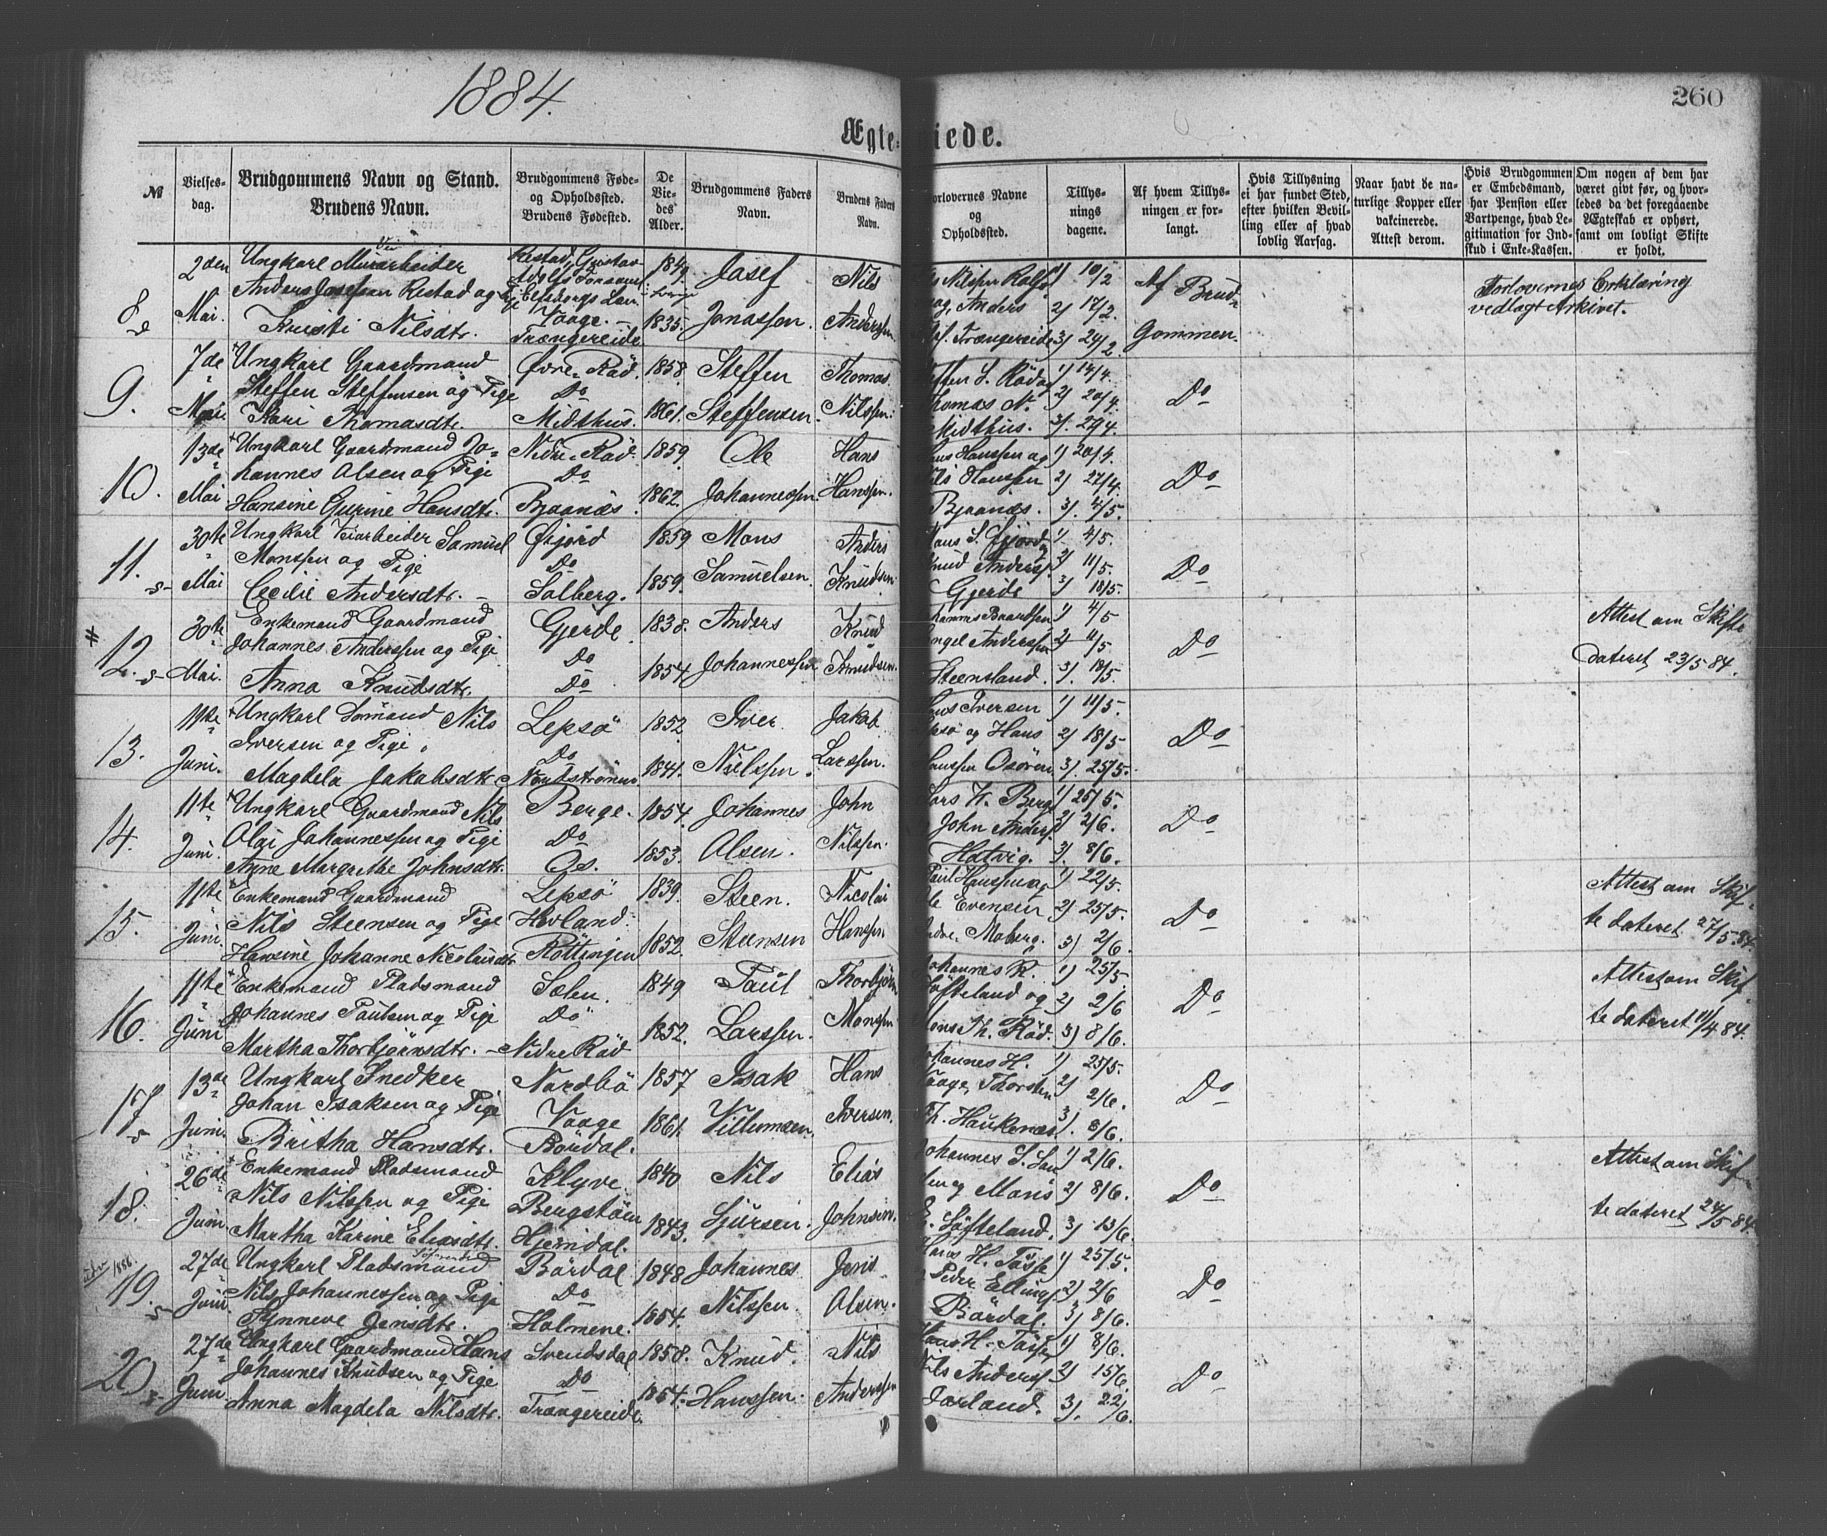 1884.
260
Ægte-
iede.
№
Vielses-
dag.
Brudgommens Navn og Stand.
Brudens Navn.
Brudgommens Føde-
og Opholdssted.
Brudens Fødested.
De
Vie-
des
Alder.
Brudgommens Faders
Navn.
Brudens Faders
Navn.
orlovernes Navne
og
Opholdssted.
Tillys-
nings
dagene.
Af hvem Tillys-
ningen er for-
langt.
Hvis Tillysning
ei har fundet Sted,
efter hvilken Bevil-
ling eller af hvad
lovlig Aarsag.
Naar havt de na-
turlige Kopper eller
vakcinerede.
Attest derom.
Hvis Brudgommen
er Embedsmand,
har Pension eller
Vartpenge, hvad Le-
gitimation for Ind-
skud i Enke-Kassen.
Om nogen af dem har
været givt før, og hvor-
ledes da det foregaaende
Ægteskab er ophørt,
samt om lovligt Skifte
er holdt.
8
2den
Mai.
Ungkarl Murarbeider
Anders Josefsen Restad og Pige
Kristi Nilsdtr.
Restad, Gustav
Adolfs
Elfsborgs Len
Vaage.
Trængereide
1849
1835.
Josef
Jonassen.
Nils
Andersen
Nilsen
Anders
Trængereide
1) 10/2
2) 17/2
3) 24/2
Af Brud-
Gommen.
Forlovernes Erklæring
vedlagt Arkivet.
9.
7de
Mai
Ungkarl Gaardmand
Steffen Steffensen og Pige
Kari Thomasdtr.
Øvre-Röd.
Do
Midthus.
1858.
1861.
Steffen
Steffensen.
Thomas
Nilssen.
S. Röd og
Thomas N.
Midthus.
1) 14/4.
2) 20/4
3) 27/4.
Do
10.
13de
Mai
Ungkarl Gaardmand Jo-
hannes Olsen og Pige
Hansine Gurine Hansdtr.
Nidre-Röd.
Do
Bjaanæs.
1859
1862.
Ole
Johannessen.
Hans
Hanssen.
Hanssen og
Nils Hanssen
Bjaanæs.
1) 20/4.
2) 27/4.
3). 4/5.
Do
11.
30te
Mai
Ungkarl Veiarbeider Samuel
Monssen og Pige
Cecilie Andersdtr.
Øfjord
Do
Solberg.
1859
1859.
Mons
Samuelsen.
Anders
Knudsen.
Knud Anders.
Gjerde
1) 4/5.
2) 11/5.
3) 18/5.
Do
12.
30te
Mai.
Enkemand Gaardmand
Johannes Anderssen og Pige
Anna Knudsdtr.
Gjerde
Do
Do
1838.
1854
Anders
Johannessen
Knud
Knudsen.
Anderssen
Steensland.
1) 4/5
2) 11/5
3). 18/5.
Do
Attest om Skifte
dateret 23/5 84.
13.
11te
Juni.
Ungkarl Sømand Nils
Iversen og Pige
Magdela Jakobsdtr.
Lepsö
Do
Nordstrømen
1852.
1841.
Iver
Nielssen.
Jakob
Larssen.
Hans Iversen
Lepsø og Hans
Hanssen Osören
1) 11/5.
2) 18/5
3). 25/5.
Do
14.
11te
Juni.
Ungkarl Gaardmand Nils
Olai Johannessen og Pige
Anne Margrethe Johnsdtr.
Berge.
Do
Os.
1854.
1853.
Johannes
Olsen.
John
Nilssen.
Lars H. Berge
John Anders.
Hatvig.
1) 25/5.
2) 2/6.
3). 8/6.
Do
15.
11te
Juni.
Enkemand Gaardmand
Nils Steensen og Pige
Hansine Johanne Nicolaisdtr
Lepsö
Hovland.
Röttingen
1839.
1852.
Steen.
Steensen
Nicolai
Hanssen
Hanssen og
Ole Evensen
Moberg.
1) 22/5.
2) 25/5.
3) 2/6.
Do
Attest om Skif-
te dateret 27/5 84.
16.
11te
Juni
Enkemand Pladsmand
Johannes Paulsen og Pige
Martha Thorbjørnsdtr.
Sælen.
Do
Nidre Röd
1849
1852.
Paul
Larssen.
Thorbjörn
Monssen
Johannes R.
Søfteland og
Mons Th. Röd.
1) 25/5
2) 2/6
3) 8/6.
Do
Attest om Skif-
te dateret 11/4 84.
17
13de
Juni
Ungkarl Snedker
Johan Isaksen og Pige
Britha Hansdtr.
Nordbö
Vaage
Bördal.
1857
1861.
Isak
Villumsen.
Hans
Iversen.
Johannes H.
Vaage, Thorsten
Th. Haukenæs
1) 25/5.
2) 2/6.
3). 8/6.
Do
18.
26de
Juni
Enkemand Pladsmand
Nils Nilssen og Pige
Martha Karine Eliasdtr.
Klyve.
Bergstöen
Hjemdal.
1840
1843.
Nils
Sjursen.
Elias
Johnsen.
Johannes S.
Mons
Söfteland.
1) 2/6.
2) 8/6.
3) 13/6.
Do
Attest om Skif-
te dateret 24/5 84.
1886.
19.
27de
Juni
Ungkarl Pladsmand
Nils Johannessen og Pige
Synneve Jensdtr.
Bördal
Do
Holmene.
1848
1854.
Johannes
Nilssen
Jens
Olsen.
Hans H. Tøsse
Peder Ellings.
Bördal.
1) 25/5.
2) 2/6
3) 8/6.
Do
20.
27de
Juni
Ungkarl Gaardmand Hans
Johannes Knudsen og Pige
Anna Magdela Nilsdtr.
Svendsdal
Do
Trængereide
1858.
1854.
Knud.
Hanssen.
Nils
Anderssen
Hans H. Tøsse
Nils Anders.
1) 8/6.
2) 15/6.
3). 22/6.
Do